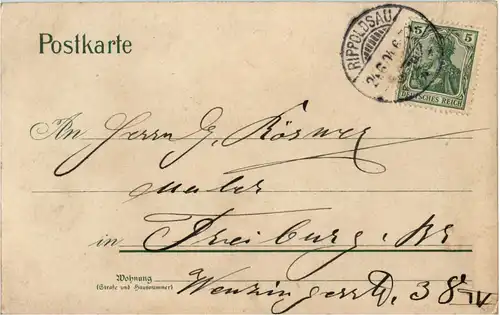 Postkarte
RIPPOLDSAU
24.6.04.6-
5 5
DEUTSCHES REICH
An Herrn G. Rösner
Maler
in Freiburg. Br
Wohnung
(Straße und Hausnummer)
Wenzingerstr. 38 IV